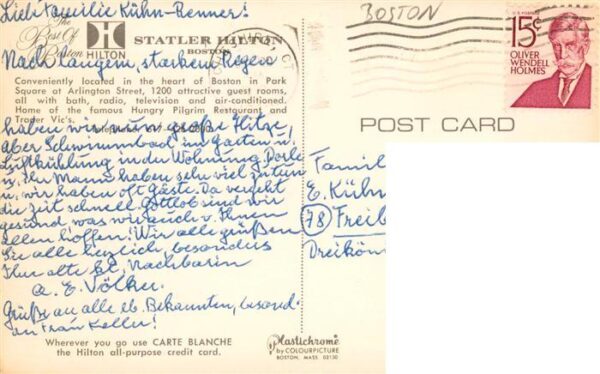 Liebe Familie Kühn-Renner!
The Best Of Boston
HILTON
STATLER HILTON
BOSTON
Nach langem, starkem Regen
Conveniently located in the heart of Boston in Park
Square at Arlington Street, 1200 attractive guest rooms,
all with bath, radio, television and air-conditioned.
Home of the famous Hungry Pilgrim Restaurant and
Trader Vic's.
haben wir nun große Hitze,
aber Schwimmbad im Garten u.
Luftkühlung in der Wohnung. Dorle
u. ihr Mann haben sehr viel zu tun
u. wir haben oft Gäste. Da vergeht
die Zeit schnell. Gottlob sind wir
gesund was wir auch v. Ihnen
allen hoffen! Wir alle grüßen
Sie alle herzlich, besonders
Ihre alte Nachbarin
a. E. Völker.
Grüße an alle lb. Bekannten, besond.
an Frau Keller!
Wherever you go use CARTE BLANCHE
the Hilton all-purpose credit card.
Plastichrome
by COLOURPICTURE
BOSTON, MASS 02130
BOSTON
U.S. POSTAGE
15¢
OLIVER
WENDELL
HOLMES
POST CARD
Famil
E. Kühn
(78) Freib
Dreikön